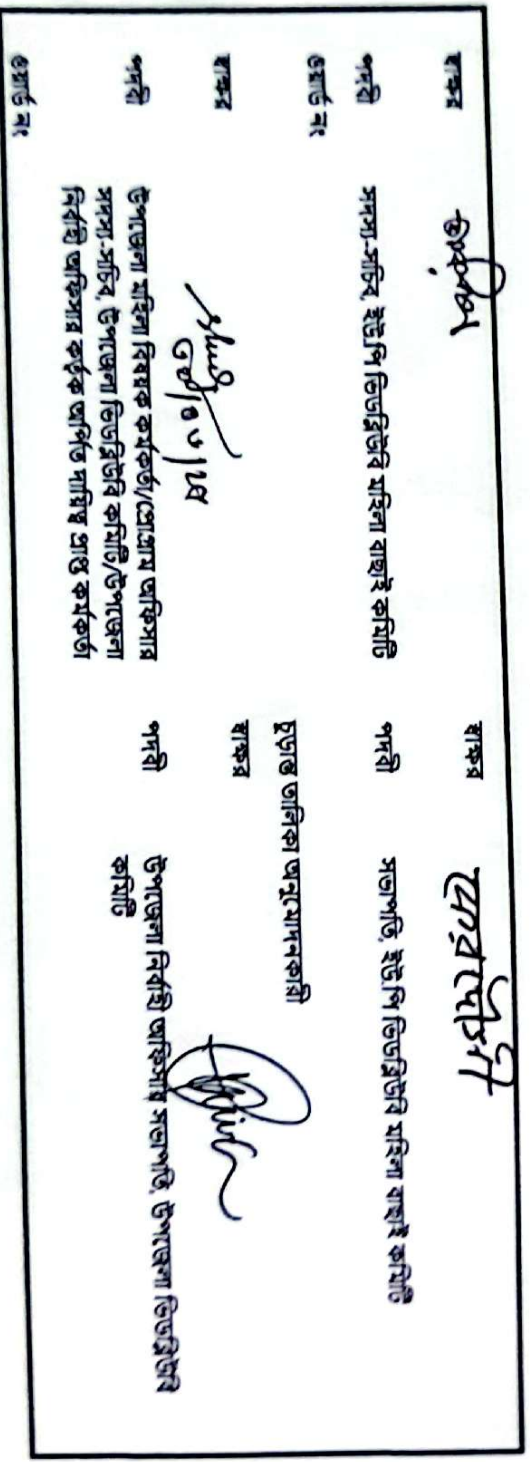 স্বাক্ষর
পদবী সদস্য-সচিব, ইউপি ভিডব্লিউবি মহিলা বাছাই কমিটি
ওয়ার্ড নং
স্বাক্ষর
পদবী সভাপতি, ইউপি ভিডব্লিউবি মহিলা বাছাই কমিটি
স্বাক্ষর
পদবী উপজেলা মহিলা বিষয়ক কর্মকর্তা/প্রোগ্রাম অফিসার
সদস্য-সচিব, উপজেলা ভিডব্লিউবি কমিটি/উপজেলা
নির্বাহী অফিসার কর্তৃক অর্পিত দায়িত্ব প্রাপ্ত কর্মকর্তা
ওয়ার্ড নং
চুড়ান্ত তালিকা অনুমোদনকারী
স্বাক্ষর
পদবী উপজেলা নির্বাহী অফিসার সভাপতি, উপজেলা ভিডব্লিউবি
কমিটি